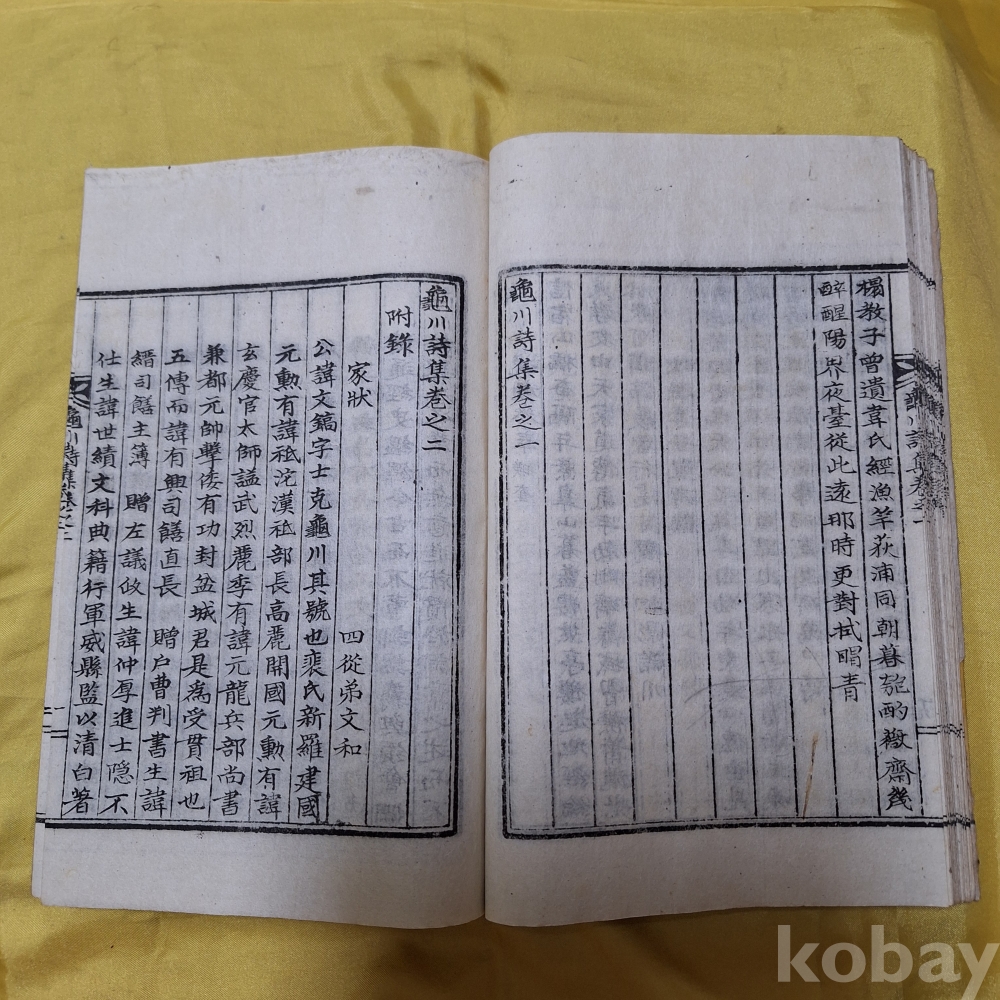 榻教子曾遺韋氏經漁竿荻浦同朝暮匏酌 齋幾
醉醒陽界夜臺從此遠那時更對拭 青
龜川詩集卷之一
龜川詩集卷之一
龜川詩集卷之二
附錄
家狀 四從弟文和
公諱文鎬字士克龜川其號也裵氏新羅建國
元勳有諱祗沱漢祗部長高麗開國元勳有諱
玄慶官太師謚武烈麗季有諱元龍兵部尚書
兼都元帥擊倭有功封盆城君是為受貫祖也
五傳而諱有興司饍直長 贈戶曹判書生諱
縉司饍主薄 贈左議政生諱仲厚進士隱不
仕生諱世績文科典籍行軍威縣監以清白著
龜川詩集卷之二
kobay